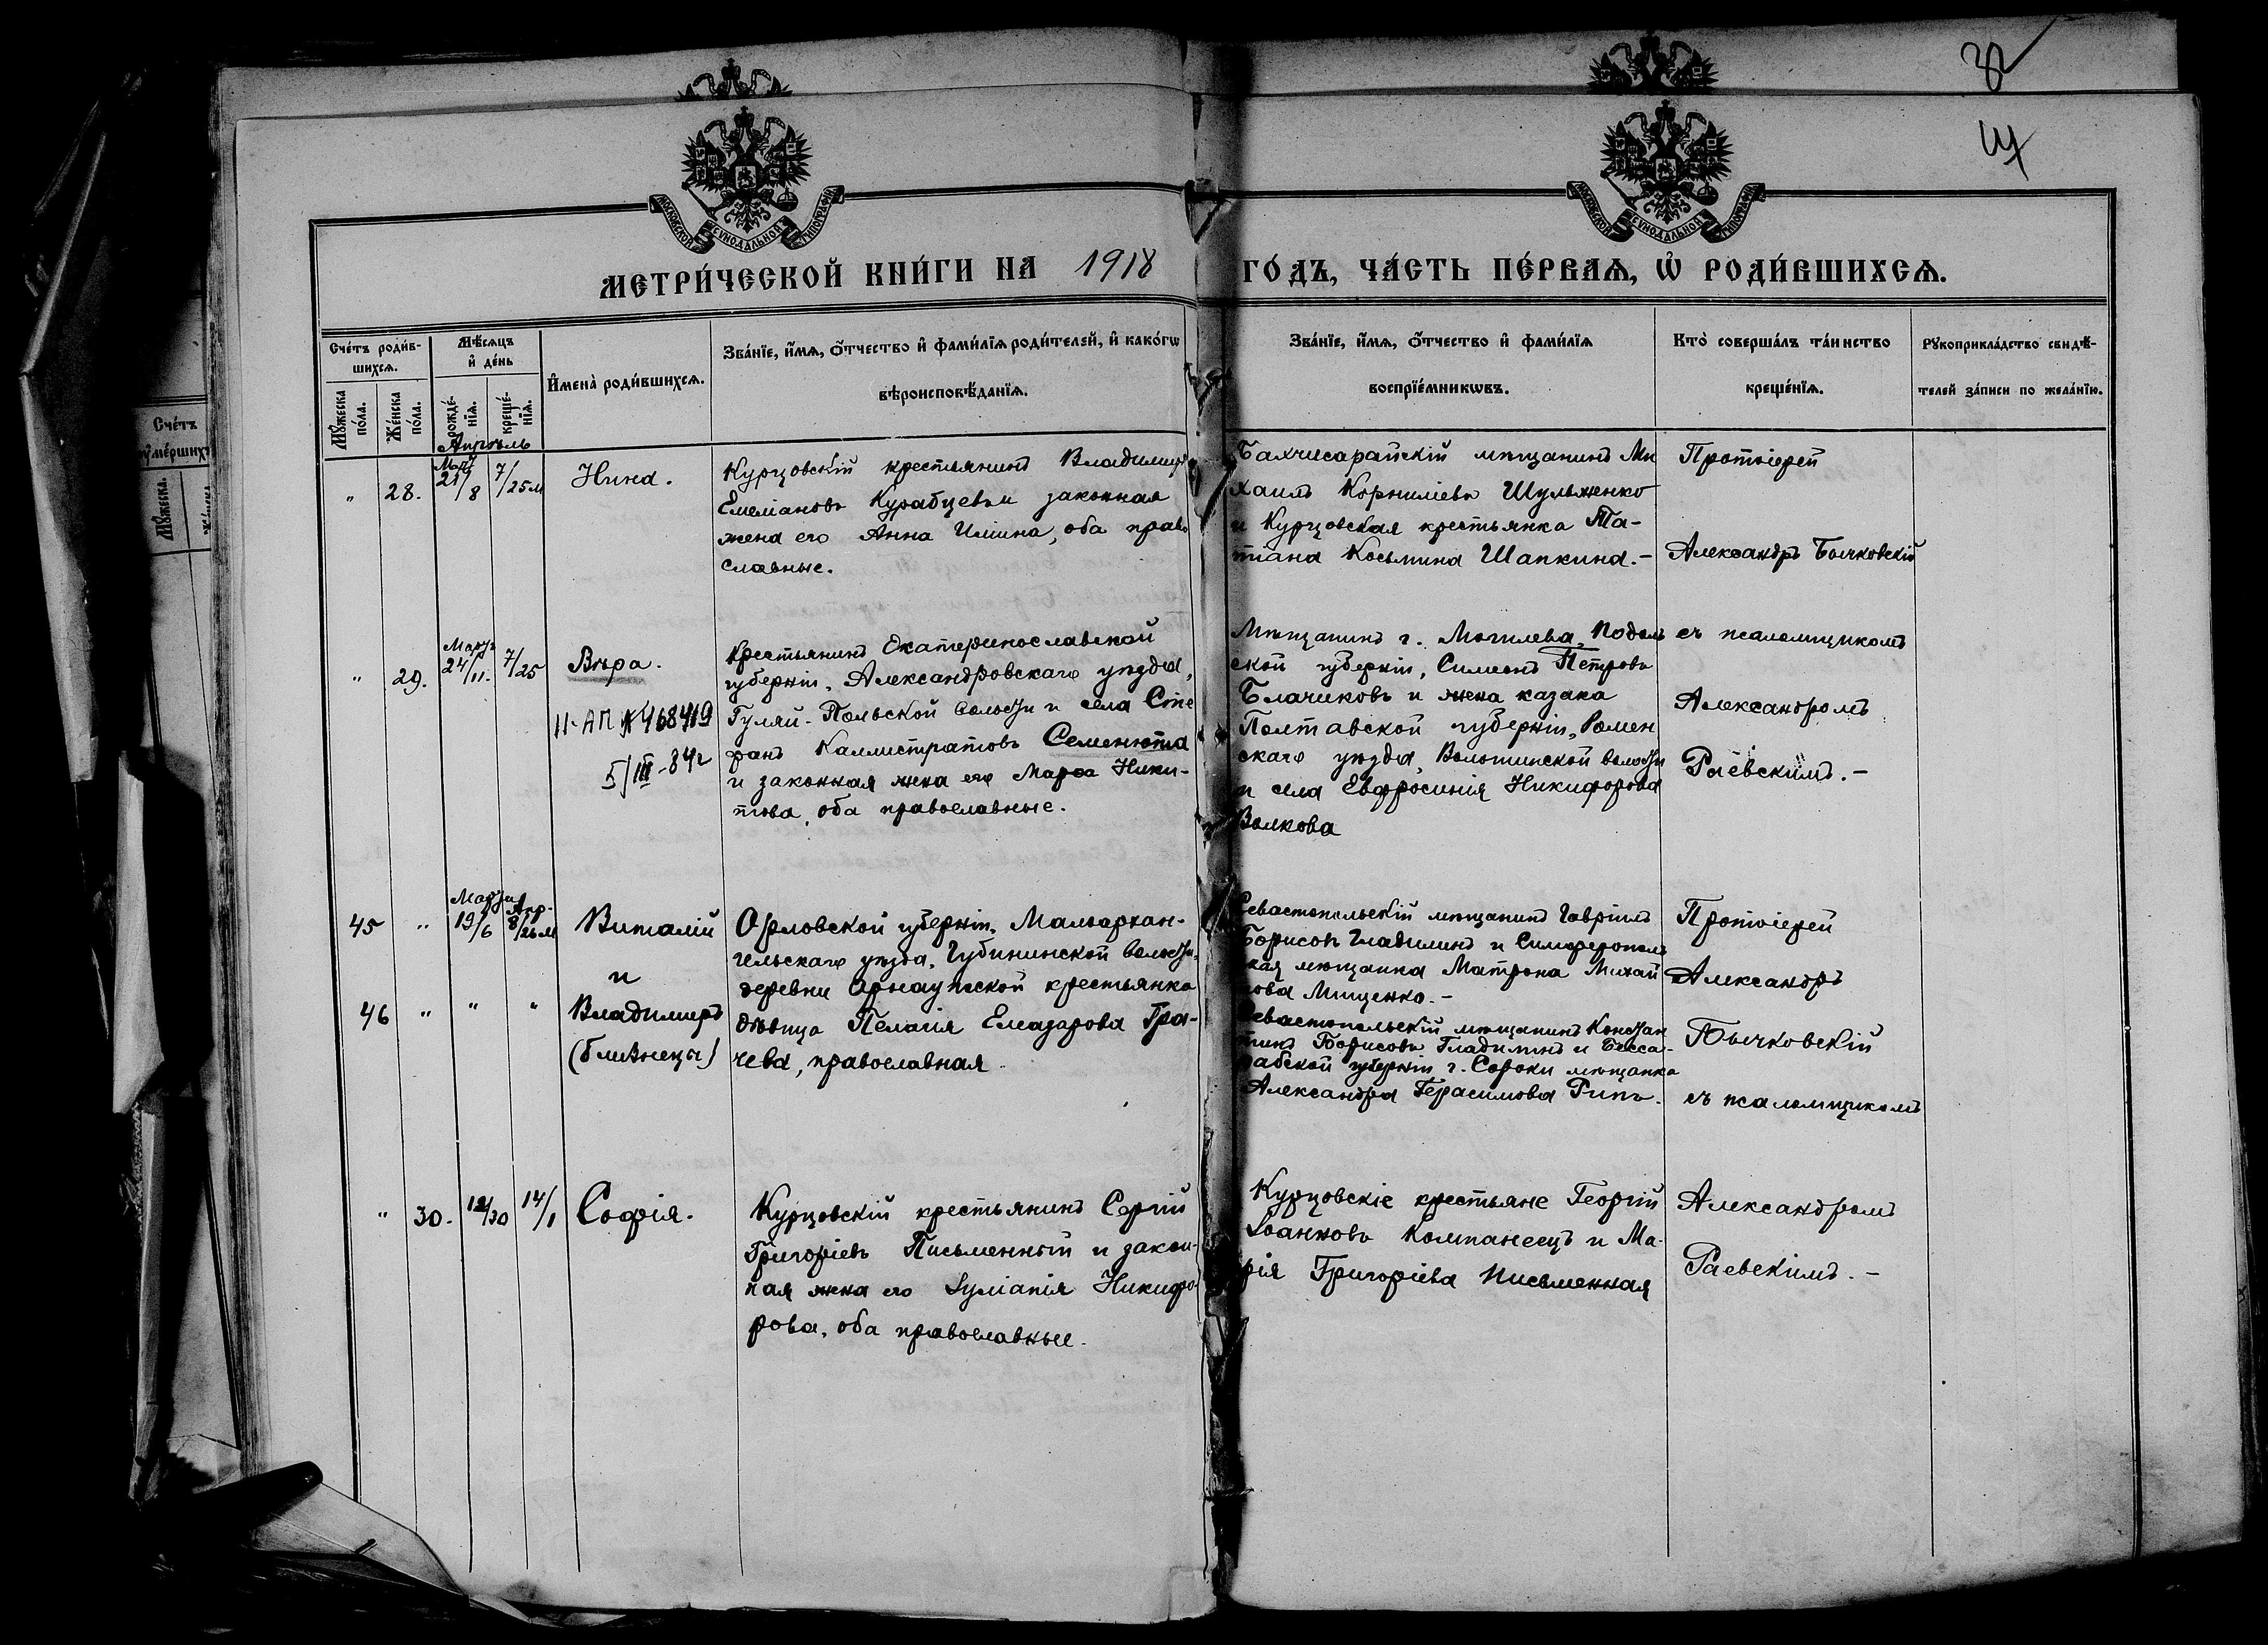 32
МОСКОВСКОЙ СѴНОДАЛЬНОЙ ТИПОГРАФІИ
МОСКОВСКОЙ СѴНОДАЛЬНОЙ ТИПОГРАФІИ
МЕТРИ́ЧЕСКОЙ КНИ́ГИ НА 1918 ГО́ДЪ, ЧА́СТЬ ПЕ́РВАѦ, Ѡ҆ РОДИ́ВШИХСѦ.
Сче́тъ роди́в-
шихсѧ.
Мꙋ́жеска по́ла.
Же́нска по́ла.
Мѣ́сѧцъ
и҆ де́нь
рожде́-
нїѧ.
креще́-
нїѧ.
И҆мена̀ роди́вшихсѧ.
Зва́нїе, и҆́мѧ, ѻ҆́тчество и҆ фами́лїѧ роди́телей, и҆ како́гѡ
вѣроисповѣ́данїѧ.
Зва́нїе, и҆́мѧ, ѻ҆́тчество и҆ фами́лїѧ
воспрїе́мникѡвъ.
Кто̀ соверша́лъ та́инство
креще́нїѧ.
Рꙋкоприкла́дство свидѣ́-
телей за́писи по жела́нїю.
Сче́тъ
ᲂу҆ме́ршихъ
Мꙋ́жеска.
Апрѣль
" 28. 21/8 7/25 м Нина.
Курцовскій крестьянинъ Владимиръ
Емеліановъ Курабцевъ и законная
жена его Анна Иліина, оба право
славные.
Бахчисарайскій мѣщанинъ Ми
хаилъ Корниліевъ Шульженко
и Курцовская крестьянка Та-
тіана Косьмина Шапкина.-
Протоіерей
Александръ Бычковскій
" 29. Марта 24/11. 7/25 Вѣра.
11-АП № 468419
5/III-84г
Крестьянинъ Екатеринославской
губерніи, Александровскаго уѣзда,
Гуляй-Польской волости и села Сте
фанъ Каллистратовъ Семенюта
и законная жена его Марѳа Ники-
това, оба православные.
Мѣщанинъ г. Могилева, Подоль
ской губерніи, Симеонъ Петровъ
Блачиковъ и жена казака
Полтавской губерніи, Ромен
скаго уѣзда, Волошинской волости
и села Евфросинія Никифорова
Волкова
съ псаломщикомъ
Александромъ
Раевскимъ.-
45 " Марта 19/6 Апр. 8/26 м Виталій
и
46 " " " Владимиръ
(близнецы)
Орловской губерніи, Малоархан-
гельскаго уѣзда, Губкинской волости,
деревни Арнаутской крестьянка
дѣвица Пелагія Елеазарова Гра-
чева, православная.
Севастопольскій мѣщанинъ Гавріилъ
Борисовъ Гладилинъ и Симферополь
ская мѣщанка Матрона Михай
лова Мищенко.-
Севастопольскій мѣщанинъ Констан
тинъ Борисовъ Гладилинъ и Бесса-
рабской губерніи г. Сороки мѣщанка
Александра Герасимова Рипъ.
Протоіерей
Александръ
Бычковскій
съ псаломщикомъ
Александромъ
Раевскимъ.-
" 30. 12/30 14/1 Софія.
Курцовскій крестьянинъ Сергій
Григоріевъ Письменный и закон-
ная жена его Іуліанія Никифо-
рова, оба православные.
Курцовскіе крестьяне Георгій
Іоанновъ Компанеецъ и Ма-
рія Григоріева Письменная